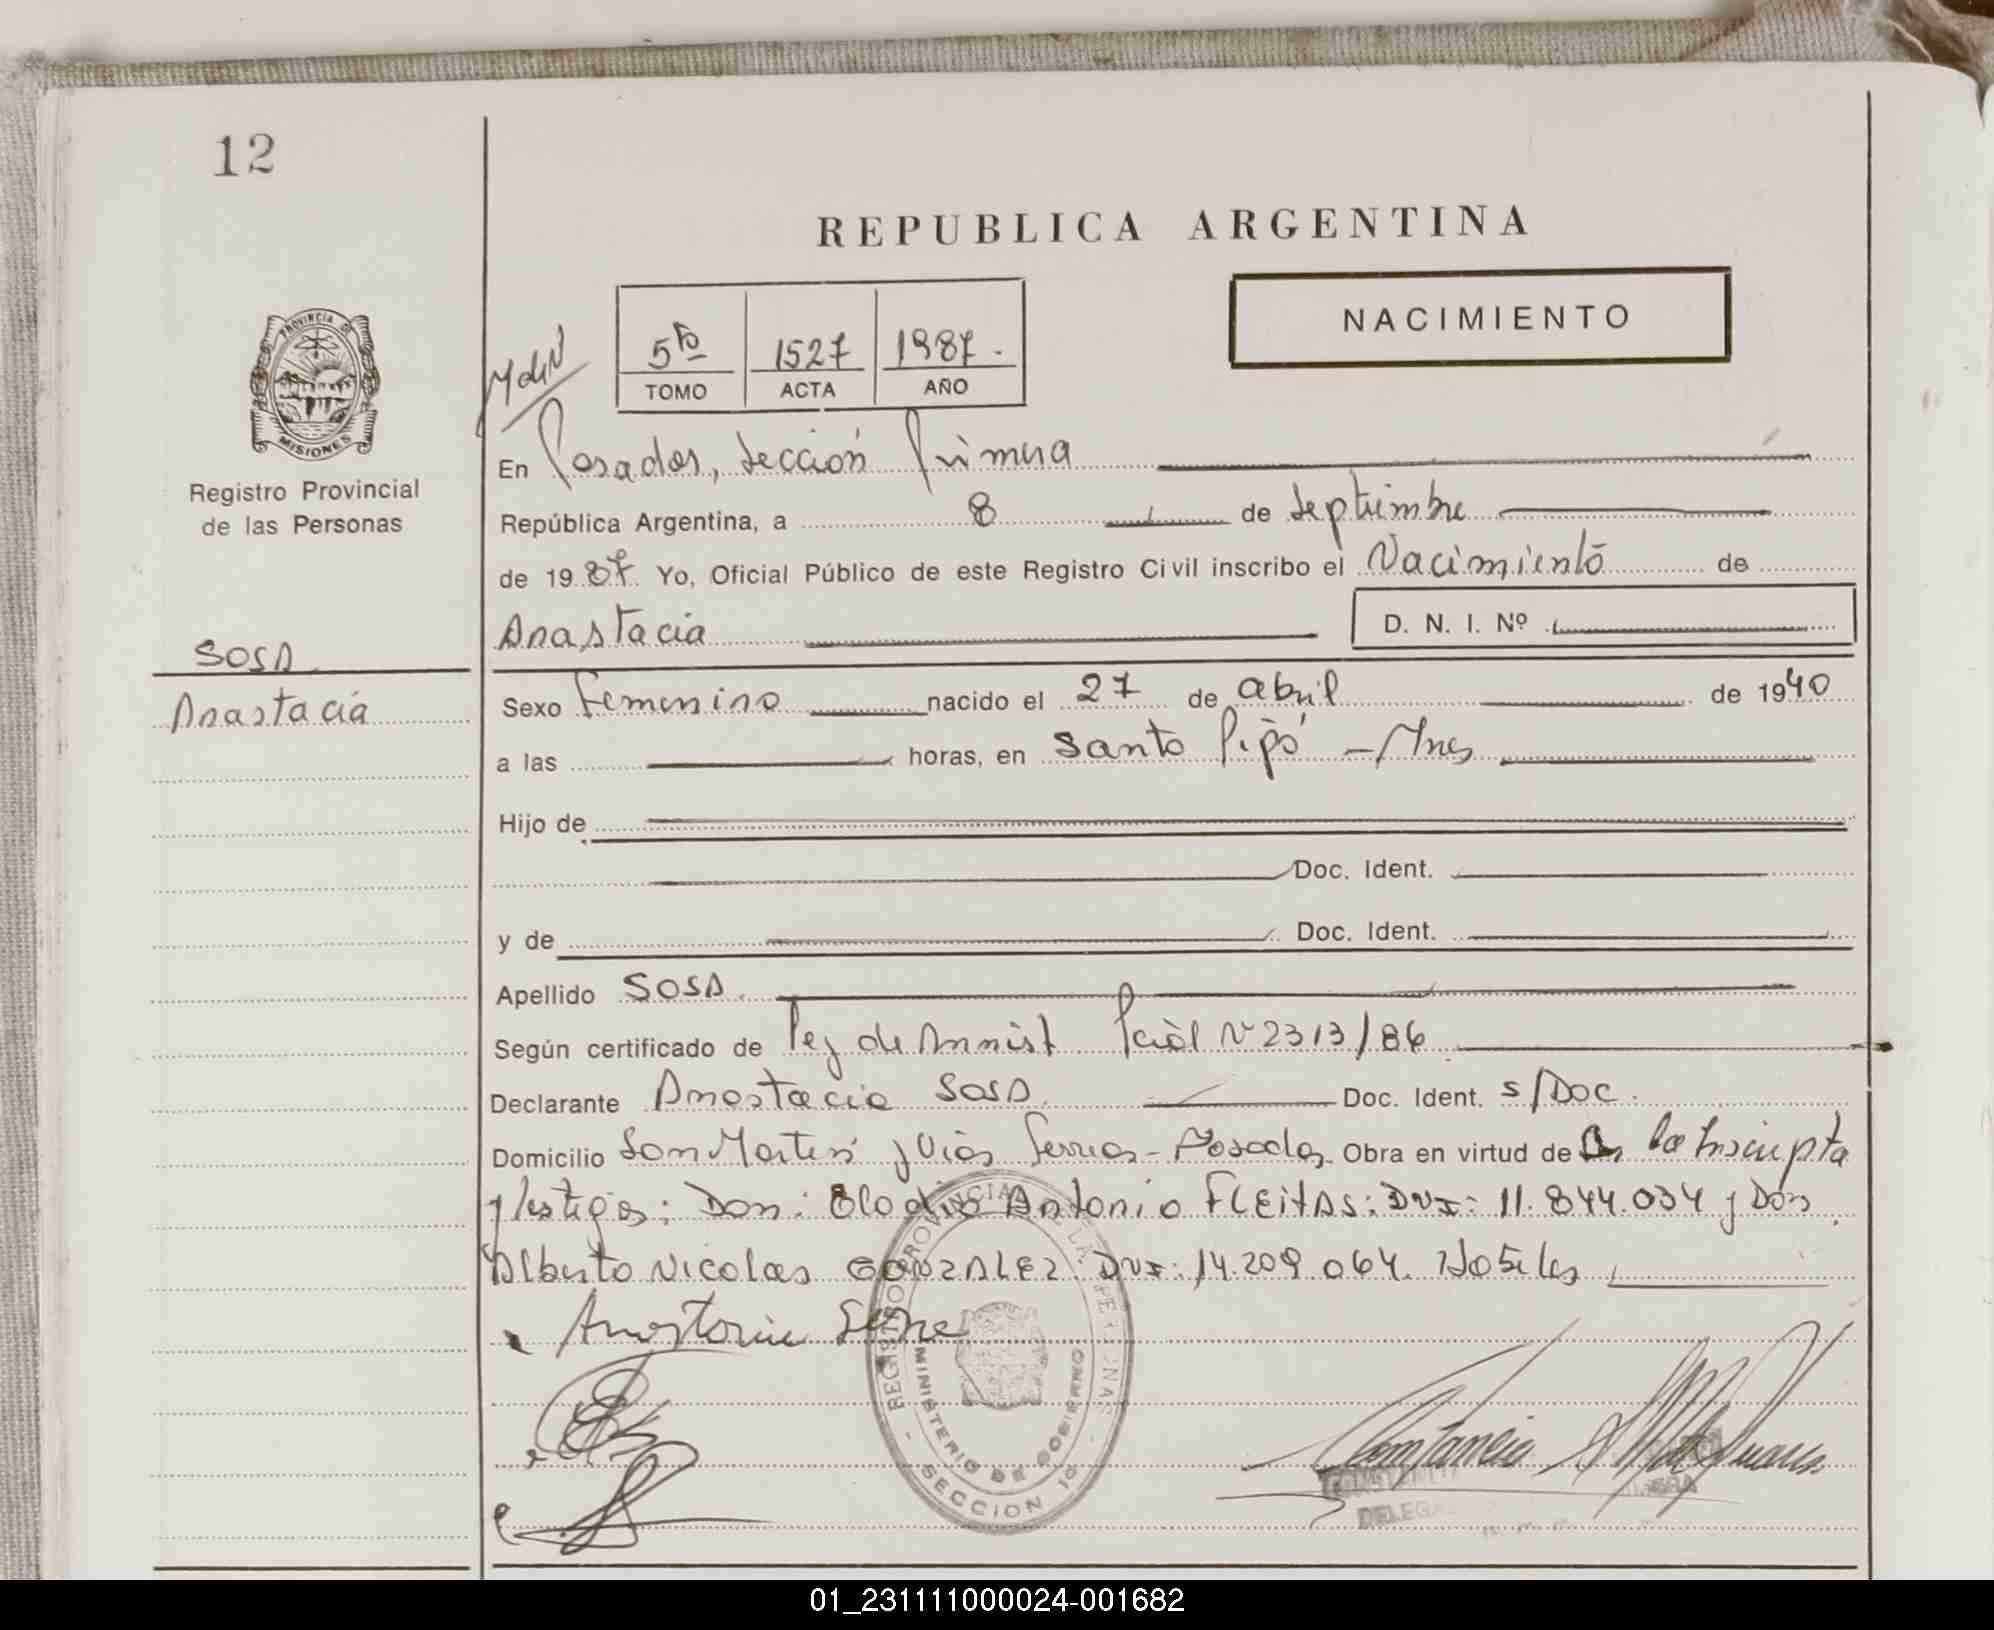 12
REPUBLICA ARGENTINA
NACIMIENTO
5to 1527 1987.
TOMO ACTA AÑO
PROVINCIA DE
MISIONES
Registro Provincial
de las Personas
En Posadas, Sección Primera
República Argentina, a 8 de Septiembre
de 1987 Yo, Oficial Público de este Registro Civil inscribo el Nacimiento de
Anastacia D. N. I. Nº
SOSA
Anastacia
Sexo Femenino nacido el 27 de abril de 1940
a las horas, en Santo Pipó - Mnes
Hijo de
Doc. Ident.
y de Doc. Ident.
Apellido SOSA.
Según certificado de Ley de Amnist Pcial Nº 2313/86
Declarante Anastacia SOSA. Doc. Ident. s/Doc.
Domicilio San Martín y Vías Ferrias - Posadas Obra en virtud de la Inscripta
y testigos: Don: Clodio Antonio FLEITAS: DNI: 11.844.034 y Don
Alberto Nicolas GONZALEZ. DNI: 14.209.064.
REGISTRO PROVINCIAL DE LAS PERSONAS
MINISTERIO DE GOBIERNO
SECCION 1º
01_231111000024-001682